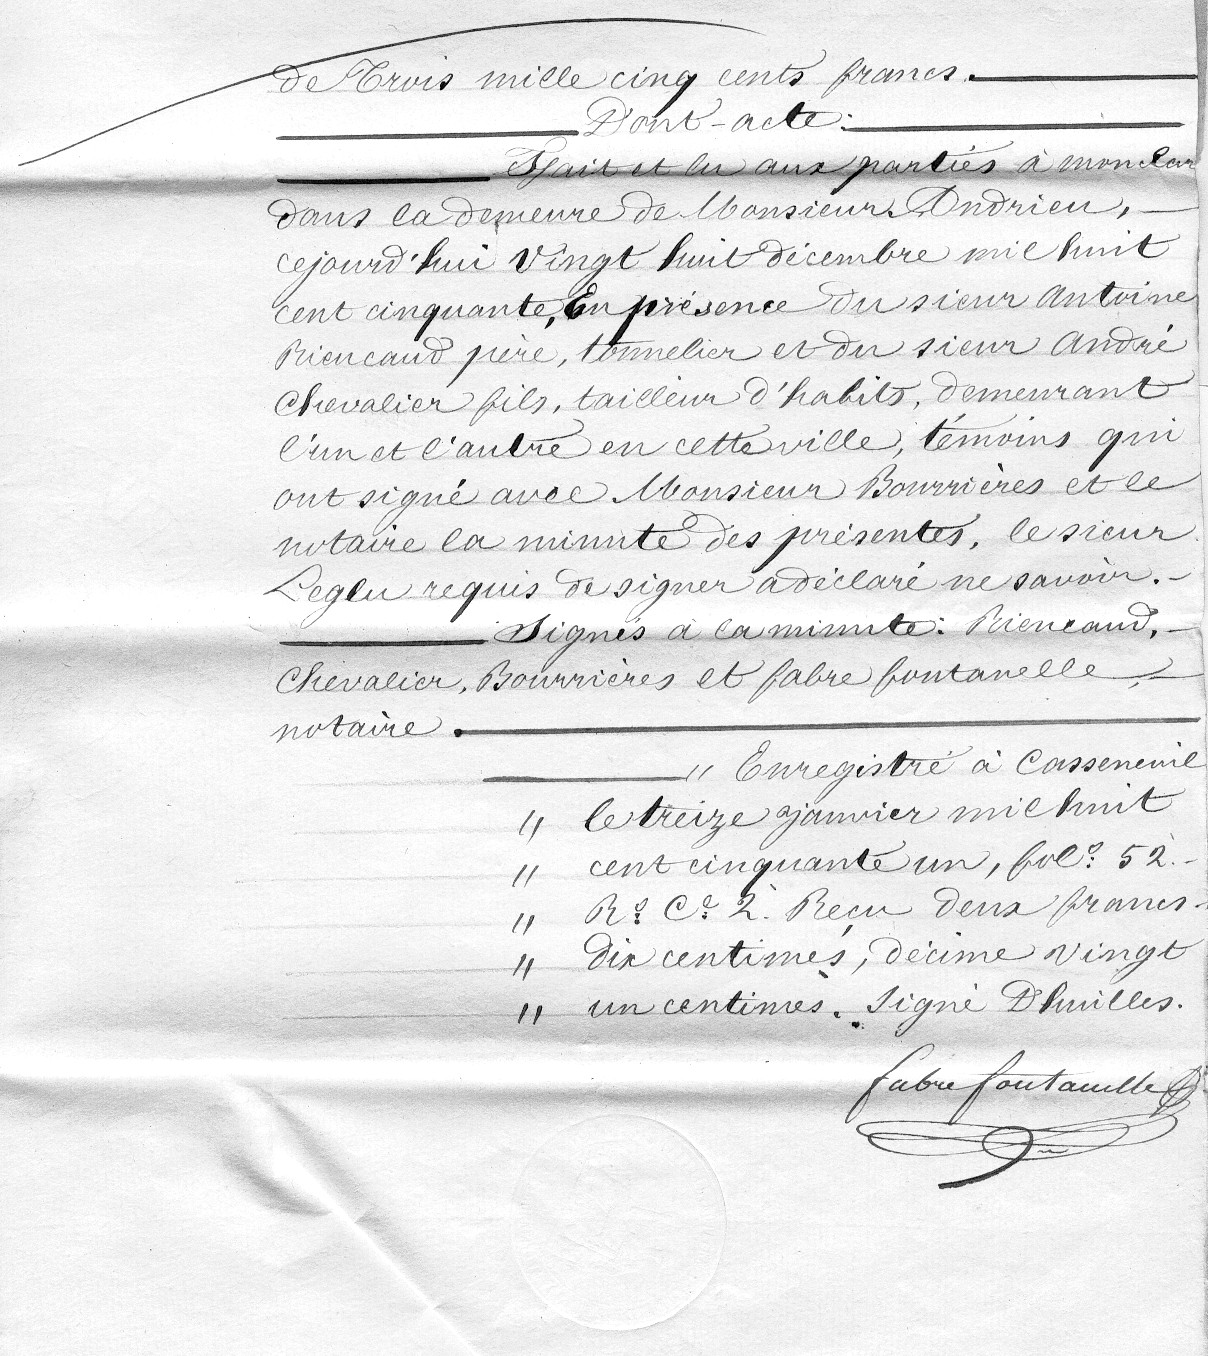 de Trois mille cinq cents francs.
Dont-acte:
Fait et lu aux parties à monclar
dans la demeure de Monsieur Andrieu,
cejourd'hui vingt huit décembre mil huit
cent cinquante, En présence du sieur Antoine
Rieucaud père, tonnelier et du sieur André
Chevalier fils, tailleur d'habits, demeurant
l'un et l'autre en cette ville, témoins qui
ont signé avec Monsieur Bourrières et le
notaire la minute des présentes, le sieur
Leglu requis de signer a déclaré ne savoir.
Signés à la minute: Rieucaud,
Chevalier, Bourrières et fabre fontanelle,
notaire.
" Enregistré à Casseneuil
" le treize janvier mil huit
" cent cinquante un, fol.º 52.
" Rº. Cº. 2. Reçu deux francs
" dix centimes, décime vingt
" un centimes. Signé Dhuilles.
fabre fontanelle